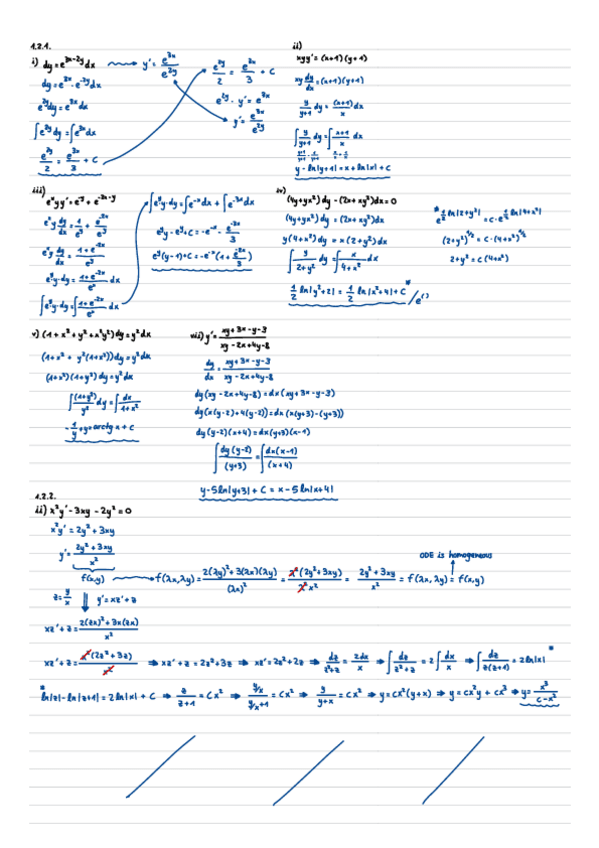 1.2.1.
i) dy = e^{3x-2y} dx ⟿ y' = e^{3x}/e^{2y}
dy = e^{3x} · e^{-2y} dx
e^{2y} dy = e^{3x} dx
∫ e^{2y} dy = ∫ e^{3x} dx
e^{2y}/2 = e^{3x}/3 + C
e^{2y}/2 = e^{3x}/3 + C
e^{2y} · y' = e^{3x}
y' = e^{3x}/e^{2y}
ii)
xyy' = (x+1)(y+1)
xy dy/dx = (x+1)(y+1)
y/(y+1) dy = (x+1)/x dx
∫ y/(y+1) dy = ∫ (x+1)/x dx
y - ln|y+1| = x + ln|x| + C
iii)
e^x y y' = e^{-y} + e^{-2x-y}
e^x y dy/dx = 1/e^y + e^{-2x}/e^y
e^x y dy/dx = (1+e^{-2x})/e^y
e^y y · dy = (1+e^{-2x})/e^x dx
∫ e^y y · dy = ∫ (1+e^{-2x})/e^x dx
∫ e^y y · dy = ∫ e^{-x} dx + ∫ e^{-3x} dx
e^y y - e^y + C = -e^{-x} - e^{-3x}/3
e^y (y-1) + C = -e^{-x} (1 + e^{-2x}/3)
iv)
(4y + yx²) dy - (2x + xy²) dx = 0
(4y + yx²) dy = (2x + xy²) dx
y(4+x²) dy = x(2+y²) dx
∫ y/(2+y²) dy = ∫ x/(4+x²) dx
1/2 ln|y²+2| = 1/2 ln|x²+4| + C * /e^{()}
* e^{1/2 ln|2+y²|} = c · e^{1/2 ln|4+x²|}
(2+y²)^{1/2} = c · (4+x²)^{1/2}
2+y² = c(4+x²)
v) (1 + x² + y² + x²y²) dy = y² dx
(1+x² + y²(1+x²)) dy = y² dx
(1+x²)(1+y²) dy = y² dx
∫ (1+y²)/y² dy = ∫ dx/(1+x²)
-1/y + y = arctg x + C
vii) y' = (xy+3x-y-3)/(xy-2x+4y-8)
dy/dx = (xy+3x-y-3)/(xy-2x+4y-8)
dy(xy-2x+4y-8) = dx(xy+3x-y-3)
dy(x(y-2)+4(y-2)) = dx(x(y+3)-(y+3))
dy(y-2)(x+4) = dx(y+3)(x-1)
∫ dy(y-2)/(y+3) = ∫ dx(x-1)/(x+4)
y-5ln|y+3| + C = x-5ln|x+4|
1.2.2.
ii) x²y' - 3xy - 2y² = 0
x²y' = 2y² + 3xy
y' = (2y² + 3xy)/x²
ODE is homogeneous
f(x,y) ⟿ f(λx,λy) = (2(λy)² + 3(λx)(λy))/(λx)² = λ²(2y²+3xy)/λ²x² = (2y²+3xy)/x² = f(λx, λy) = f(x,y)
z = y/x ⇓ y' = xz' + z
xz' + z = (2(zx)² + 3x(zx))/x²
xz' + z = x²(2z²+3z)/x² ⇒ xz' + z = 2z² + 3z ⇒ xz' = 2z² + 2z ⇒ dz/(z²+z) = 2dx/x ⇒ ∫ dz/(z²+z) = 2 ∫ dx/x ⇒ ∫ dz/(z(z+1)) = 2ln|x| *
* ln|z| - ln|z+1| = 2ln|x| + C ⇒ z/(z+1) = Cx² ⇒ (y/x)/(y/x+1) = Cx² ⇒ y/(y+x) = Cx² ⇒ y = cx²(y+x) ⇒ y = cx²y + cx³ ⇒ y = x³/(c-x²)